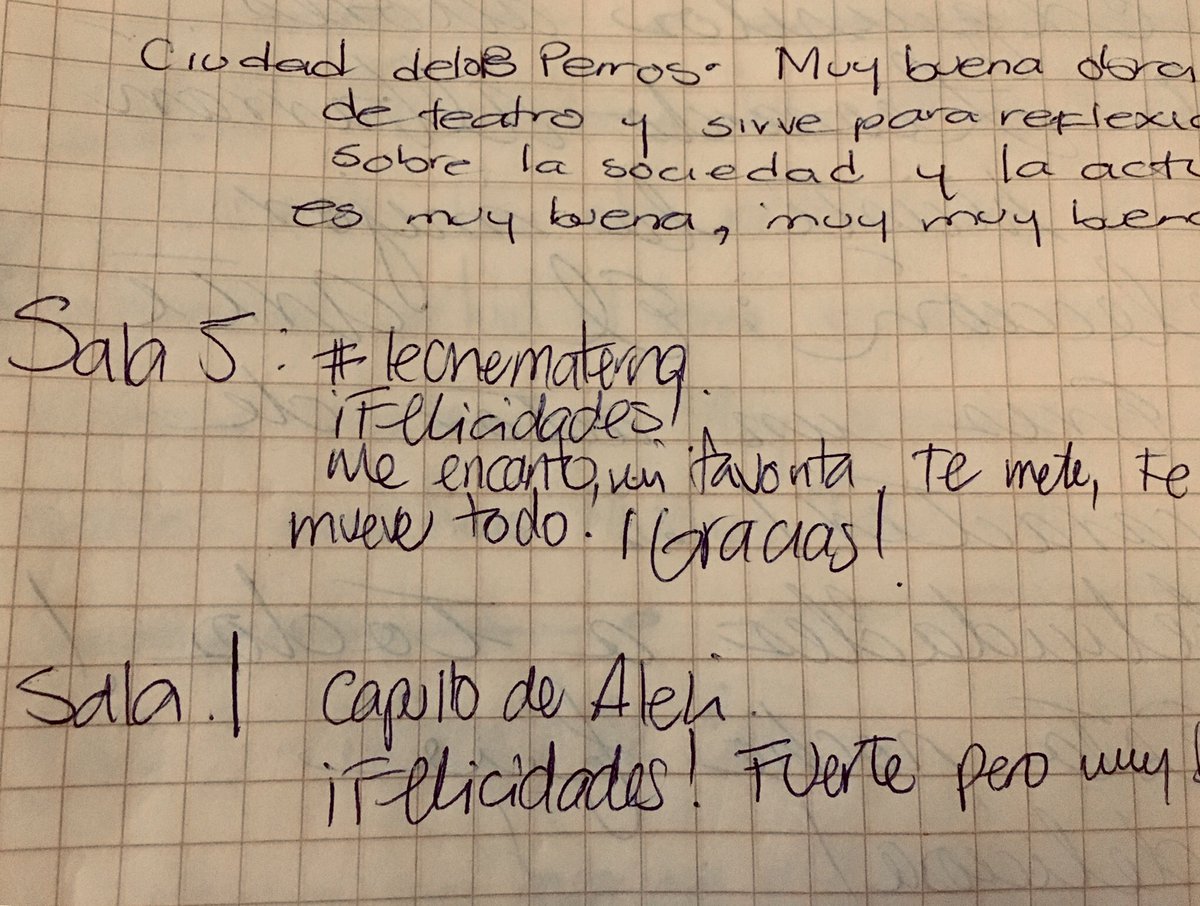 Ciudad delos Perros. Muy buena obra
de teatro y sirve para reflexio
sobre la sociedad y la actu
es muy buena, muy muy buena
Sala 5: #lechematerna.
¡Felicidades!
Me encanto, mi favorita, te mete, te
mueve todo. ¡Gracias!
Sala.1 Capullo de Aleli.
¡Felicidades! Fuerte pero muy